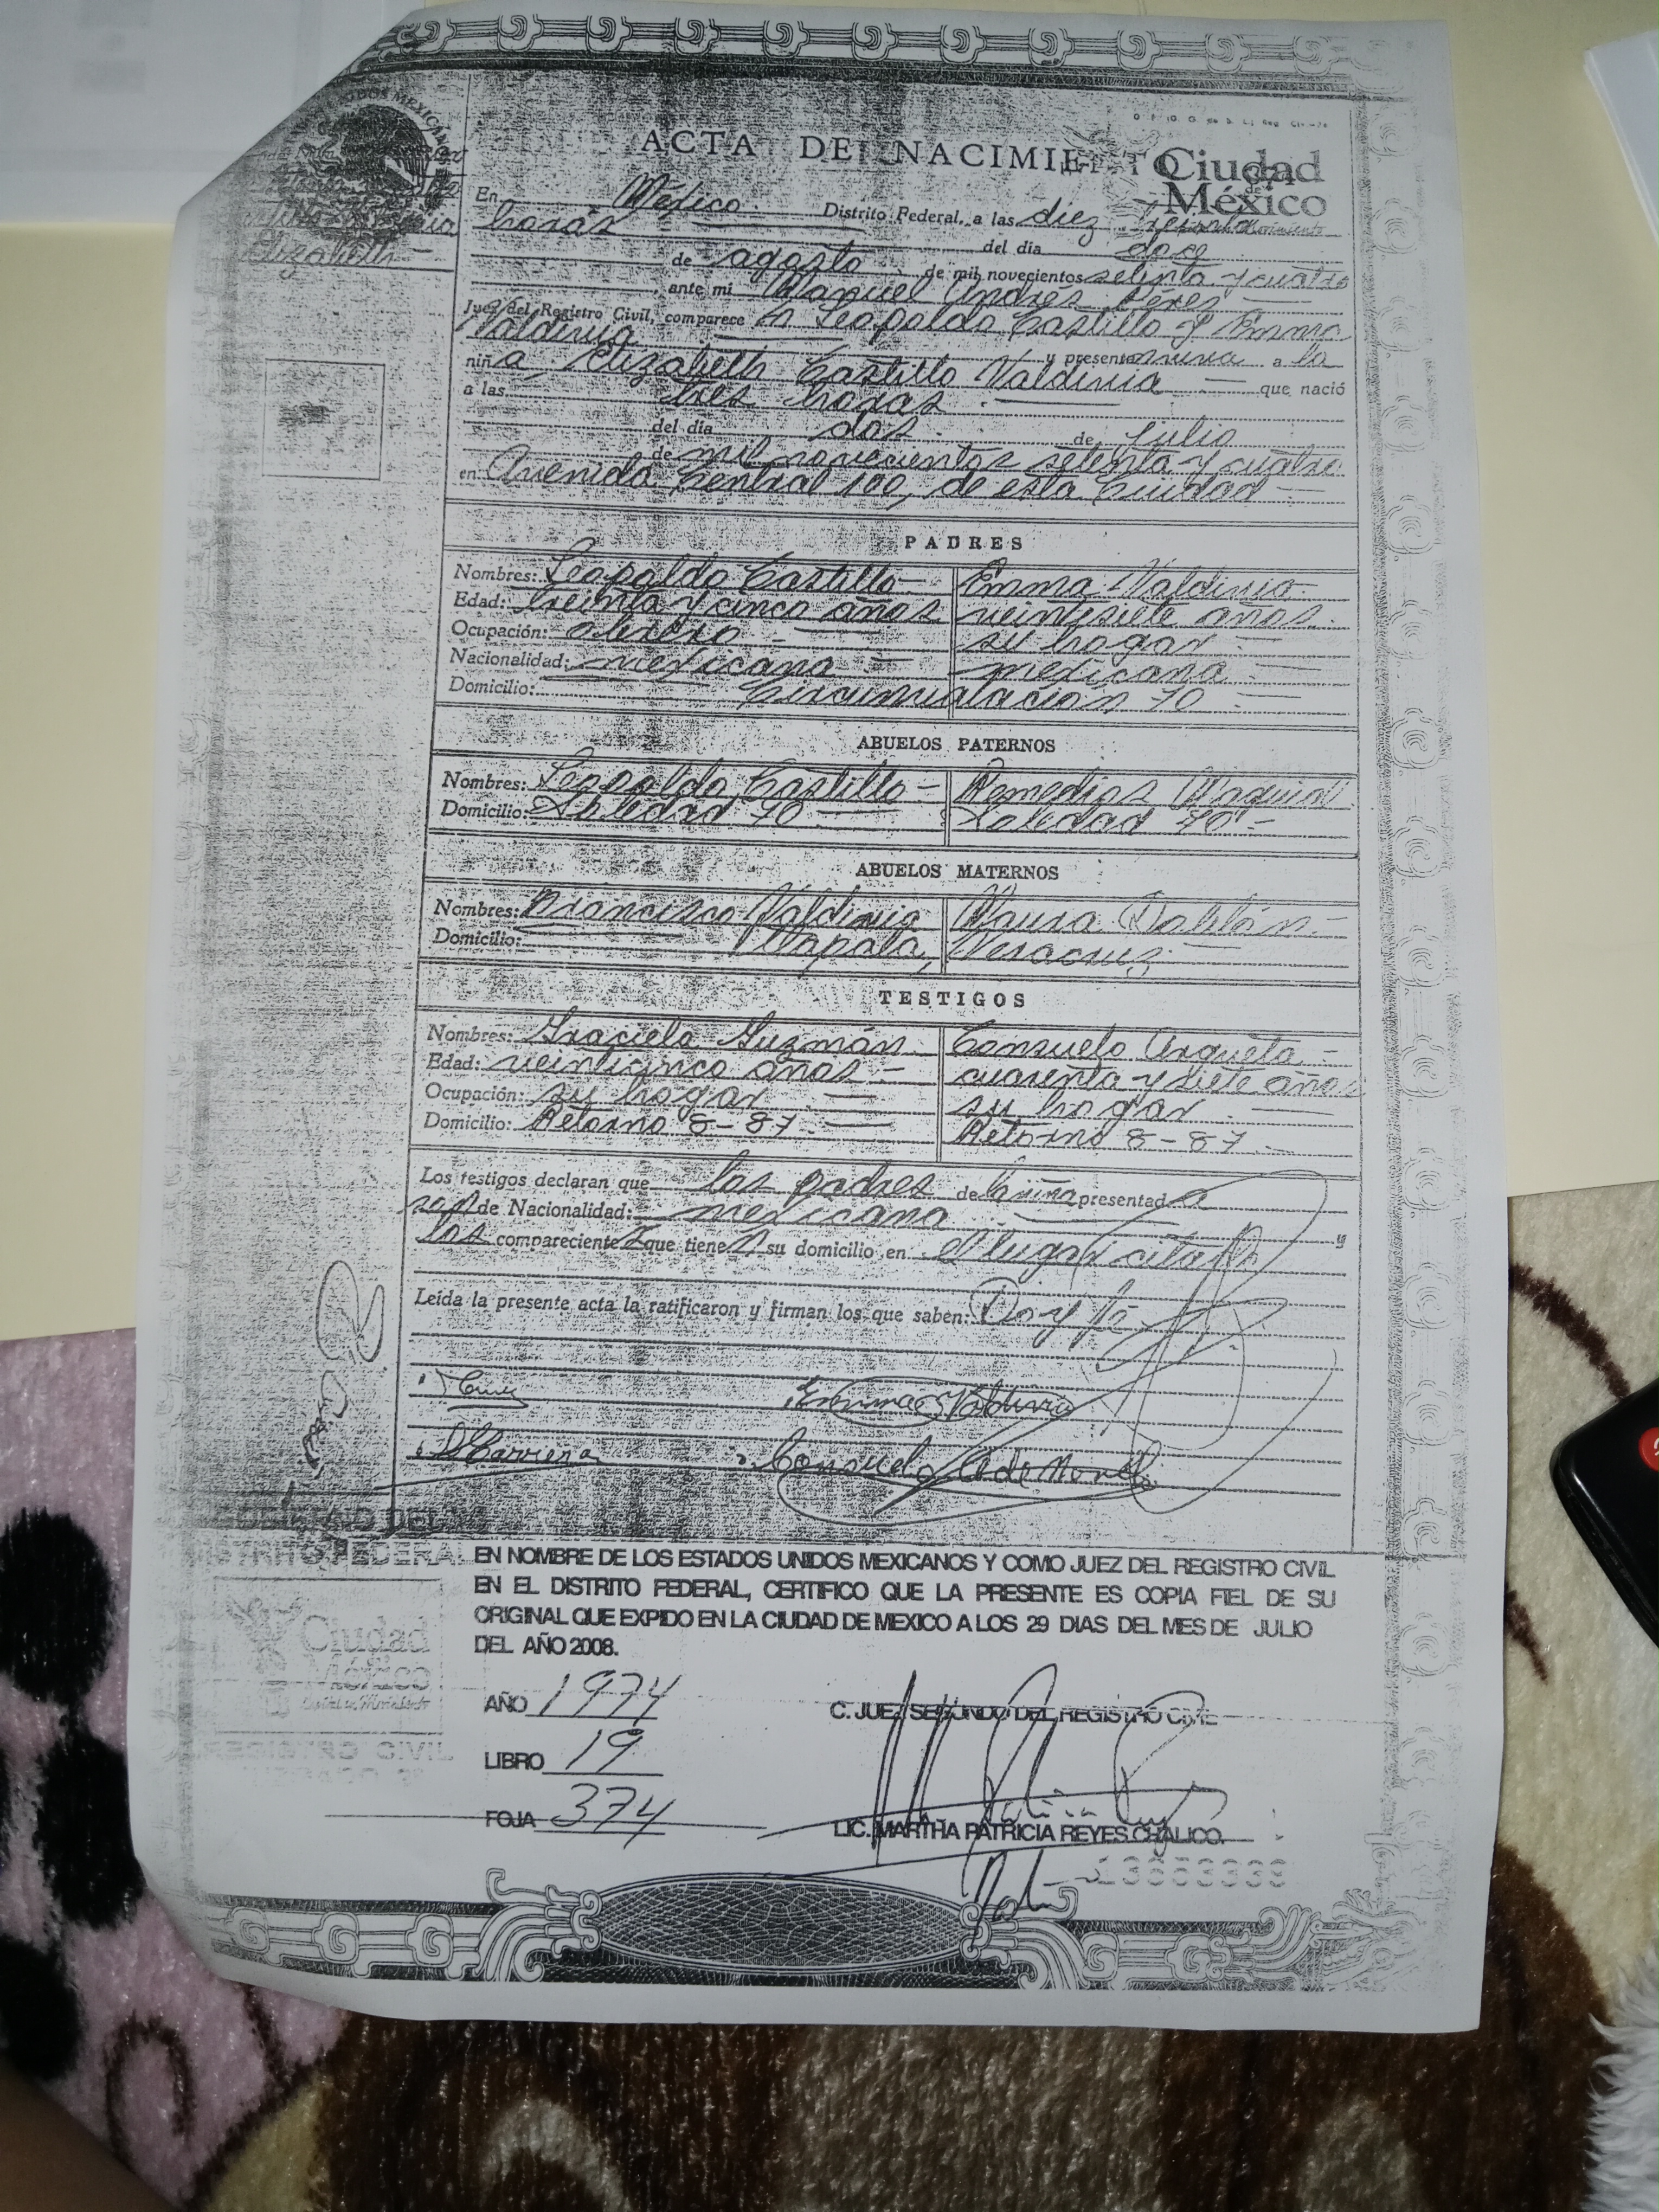 ACTA DE NACIMIENTO
Ciudad
de
México
En México. Distrito Federal, a las diez
horas del día doce
de agosto de mil novecientos setenta y cuatro
ante mi Manuel Andrés Pérez
Juez del Registro Civil, comparecen Leopoldo Castillo y Emma
Valdivia y presentan viva a la
niña Elizabeth Castillo Valdivia que nació
a las tres horas
del día dos de Julio
de mil novecientos setenta y cuatro
en Avenida Central 100, de esta Ciudad
Elizabeth
PADRES
Nombres: Leopoldo Castillo Emma Valdivia
Edad: treinta y cinco años veintisiete años.
Ocupación: obrero su hogar
Nacionalidad: mexicana mexicana
Domicilio: Circunvalación 70
ABUELOS PATERNOS
Nombres: Leopoldo Castillo Remedios
Domicilio: Soledad 70 Soledad 70
ABUELOS MATERNOS
Nombres: Francisco Valdivia Maura
Domicilio: Veracruz
TESTIGOS
Nombres: Graciela Guzmán Consuelo Argueta
Edad: veinticinco años cuarenta y siete años
Ocupación: su hogar su hogar
Domicilio: Retorno 8-87 Retorno 8-87
Los testigos declaran que los padres de la niña presentada
son de Nacionalidad: mexicana y
los comparecientes que tienen su domicilio en el lugar citado
Leída la presente acta la ratificaron y firman los que saben: Doy fé
Emma Valdivia
Consuelo
DISTRITO FEDERAL
Ciudad
México
REGISTRO CIVIL
EN NOMBRE DE LOS ESTADOS UNIDOS MEXICANOS Y COMO JUEZ DEL REGISTRO CIVIL
EN EL DISTRITO FEDERAL, CERTIFICO QUE LA PRESENTE ES COPIA FIEL DE SU
ORIGINAL QUE EXPIDO EN LA CIUDAD DE MEXICO A LOS 29 DIAS DEL MES DE JULIO
DEL AÑO 2008.
AÑO 1974
C. JUEZ SEGUNDO DEL REGISTRO CIVIL
LIBRO 19
FOJA 374
LIC. MARTHA PATRICIA REYES CHALICO.